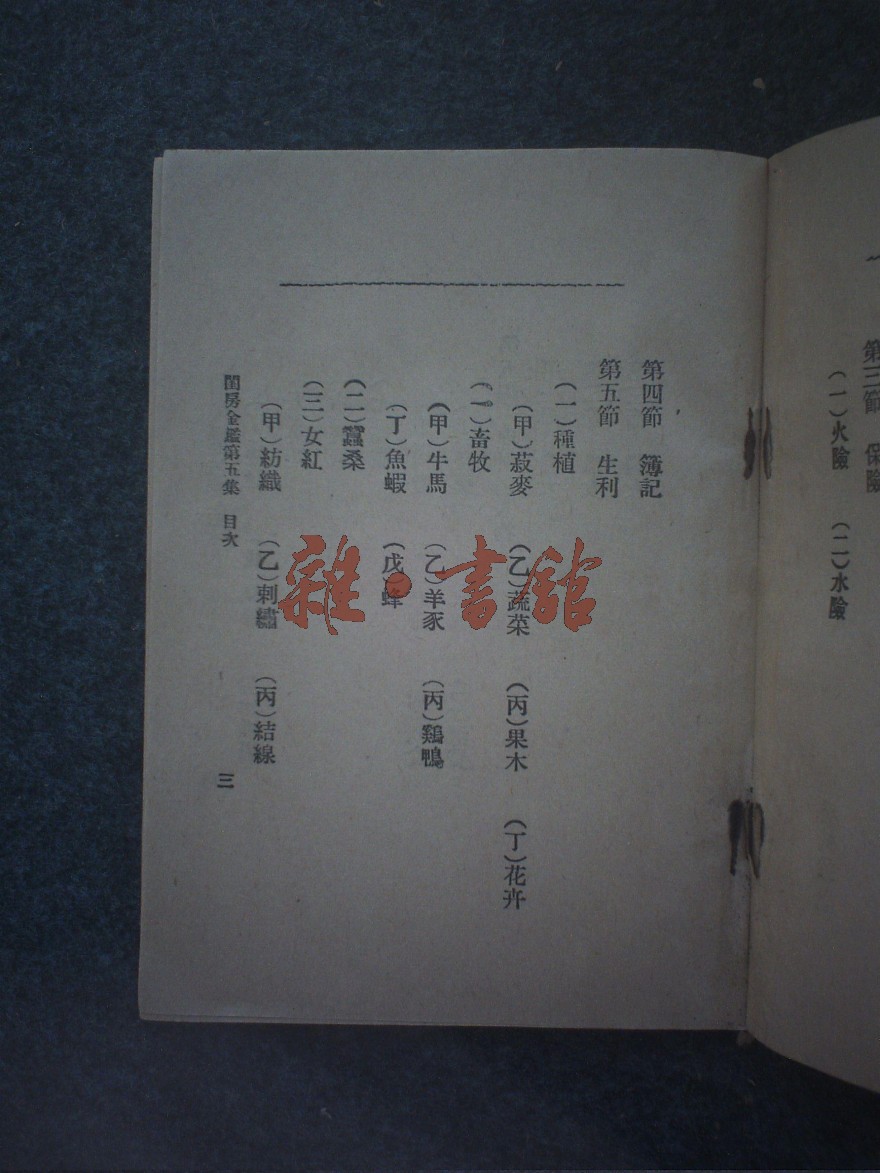 第三節　保險
（一）火險　（二）水險
第四節　簿記
第五節　生利
（一）種植
（甲）菽麥　（乙）蔬菜　（丙）果木　（丁）花卉
（一）畜牧
（甲）牛馬　（乙）羊豕　（丙）鷄鴨
（丁）魚蝦　（戊）蜂
（二）蠶桑
（三）女紅
（甲）紡織　（乙）刺繡　（丙）結線
閨房金鑑第五集　目次　三
雜·書館